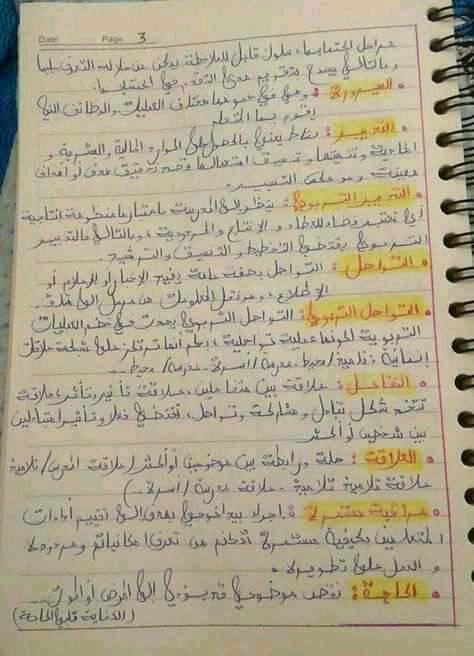 Date: Page: 3
مراحل اكتسابها، سلوك قابل للملاحظة يمكن من خلاله التعرف عليها
وبالتالي يسمح بتقويم مدى التقدم في اكتسابها.
• السيرورة: وهي في عمومها مختلف العمليات والوظائف التي
يقوم بها المتعلم
• التدبير: نشاط يعنى بالحصول على الموارد المالية والبشرية و
المادية وتنميتها وتنسيق استعمالها قصد تحقيق هدف أو أهداف
معينة، وهو علم التسيير.
• التدبير التربوي: ينظر إلى المدرسة باعتبارها منظومة إنتاجية
أي تعتبر فضاء للعطاء و الإنتاج والمردودية، وبالتالي فالتدبير
التربوي يقتضي التخطيط والتنسيق والترشيد.
• التواصل: التواصل بصفة عامة يفيد الإخبار أو الإعلام أو
الاطلاع، وهو نقل المعلومات من مرسل إلى متلق
• التواصل التربوي: التواصل التربوي يحدث في خضم العمليات
التربوية لكونها عملية تواصلية، بحكم أنها ترتكز على شبكة علاقات
إنسانية: تلاميذ/ محيط، مدرسة/ أسرة، مدرسة/ محيط...
• التفاعل: علاقة بين متفاعلين، علاقة تأثير وتأثر، علاقة
تتخذ شكل تبادل ومشاركة وتواصل، تقتضي فعلا وتأثيرا متبادلين
بين شخصين أو أكثر
• العلاقة: صلة ورابطة بين موضوعين أو أكثر (علاقة المدرس/ تلاميذ
علاقة تلاميذ تلاميذ - علاقة مدرسة/ أسرة..)
• مراقبة مستمرة: إجراء بيداغوجي يهدف إلى تقييم أداءات
المتعلمين بكيفية مستمرة تمكنهم من تعرف إمكانياتهم ومردودهم
و العمل على تطويره.
• الحاجة: نقص موضوعي قد يؤدي إلى المرض أو الموت